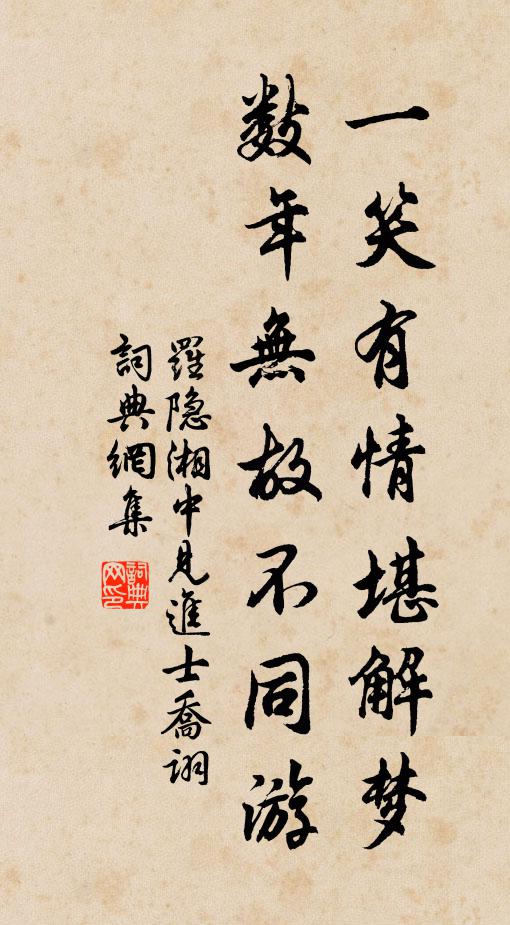 一笑有情堪解梦
数年無故不同游
羅隐湘中見進士喬诩
詞典網集
詞典网印